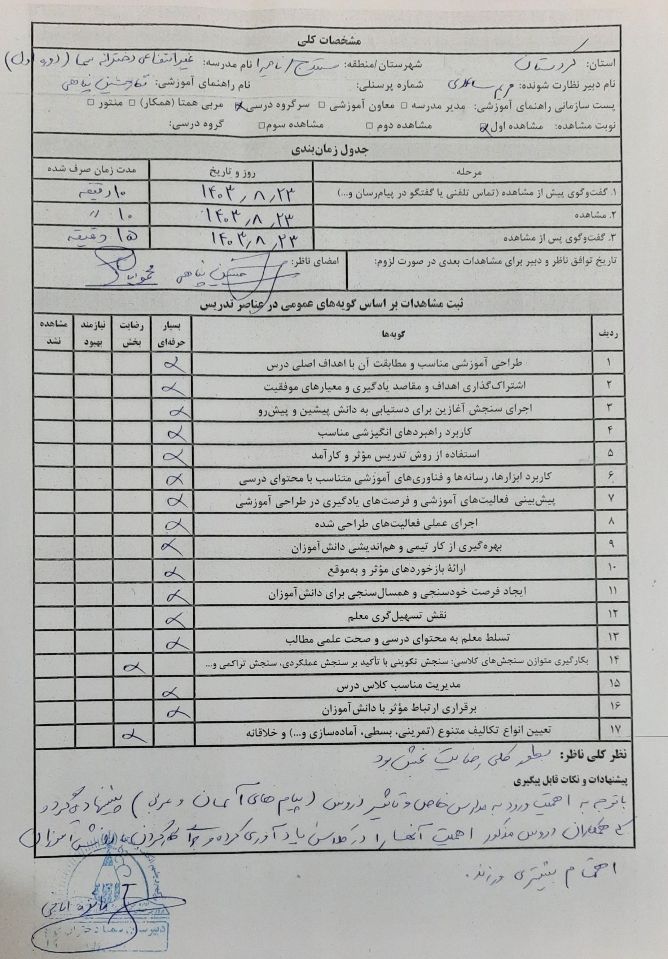 مشخصات کلی
استان: کردستان شهرستان/منطقه: سنندج/ناحیه ۱ نام مدرسه: غیرانتفاعی دخترانه سما (دوره اول)
نام دبیر نظارت شونده: مریم شماره پرسنلی: نام راهنمای آموزشی:
پست سازمانی راهنمای آموزشی: مدیر مدرسه □ معاون آموزشی □ سرگروه درسی □ مربی همتا (همکار) □ منتور □
نوبت مشاهده: مشاهده اول □ مشاهده دوم □ مشاهده سوم □ گروه درسی:
جدول زمان‌بندی
مرحله روز و تاریخ مدت زمان صرف شده
۱. گفت‌وگوی پیش از مشاهده (تماس تلفنی یا گفتگو در پیام‌رسان و...) ۱۴۰۳٫۸٫۲۳ ۱۰ دقیقه
۲. مشاهده ۱۴۰۳٫۸٫۲۳ ۱۰ //
۳. گفت‌وگوی پس از مشاهده ۱۴۰۳٫۸٫۲۳ ۱۵ دقیقه
تاریخ توافق ناظر و دبیر برای مشاهدات بعدی در صورت لزوم: امضای ناظر:
ثبت مشاهدات بر اساس گویه‌های عمومی در عناصر تدریس
ردیف گویه‌ها بسیار حرفه‌ای رضایت بخش نیازمند بهبود مشاهده نشد
۱ طراحی آموزشی مناسب و مطابقت آن با اهداف اصلی درس
۲ اشتراک‌گذاری اهداف و مقاصد یادگیری و معیارهای موفقیت
۳ اجرای سنجش آغازین برای دستیابی به دانش پیشین و پیش‌رو
۴ کاربرد راهبردهای انگیزشی مناسب
۵ استفاده از روش تدریس مؤثر و کارآمد
۶ کاربرد ابزارها، رسانه‌ها و فناوری‌های آموزشی متناسب با محتوای درسی
۷ پیش‌بینی فعالیت‌های آموزشی و فرصت‌های یادگیری در طراحی آموزشی
۸ اجرای عملی فعالیت‌های طراحی شده
۹ بهره‌گیری از کار تیمی و هم‌اندیشی دانش‌آموزان
۱۰ ارائهٔ بازخوردهای مؤثر و به‌موقع
۱۱ ایجاد فرصت خودسنجی و همسال‌سنجی برای دانش‌آموزان
۱۲ نقش تسهیل‌گری معلم
۱۳ تسلط معلم به محتوای درسی و صحت علمی مطالب
۱۴ بکارگیری متوازن سنجش‌های کلاسی: سنجش تکوینی با تأکید بر سنجش عملکردی، سنجش تراکمی و...
۱۵ مدیریت مناسب کلاس درس
۱۶ برقراری ارتباط مؤثر با دانش‌آموزان
۱۷ تعیین انواع تکالیف متنوع (تمرینی، بسطی، آماده‌سازی و...) و خلاقانه
نظر کلی ناظر: بطور کلی رضایت بخش بود
پیشنهادات و نکات قابل پیگیری
با توجه به اهمیت ورود به مدارس خاص و تأثیر دروس (پیام های آسمان و عربی) پیشنهاد می گردد
که همکاران دروس مذکور اهمیت آنها را در کلاس یادآوری کرده و
اهتمام بیشتری ورزند.